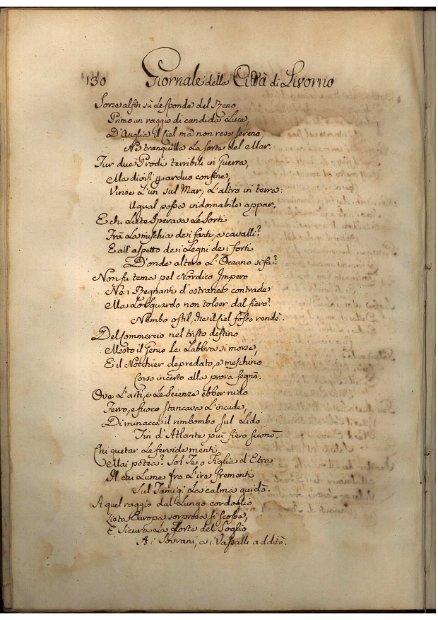 130 Giornale della Città di Livorno
Sorse alfin sù le sponde del
Primo un raggio di candida Luce,
D'Anglia il Ciel ma non rese sereno
Ne tranquilla La sorte del Mar.
Fur due Prodi terribili in Guerra,
Ma divisi per arduo confine,
Vince L'un sul Mar, L'altro in terra:
Ugual possa indomabile appar.
E chi Lieto sperava Le Sorti
Frà La mischia dei fanti, e cavalli?
E all'aspetto dei Legni dei forti
D'onde altero L'Oceano si fà?
Non fu tema pel Nordico Impero
Nè i Regnanti d'ostraniere contrade
Ma Lo sguardo non tolser dal fiero
Nembo ostil, che il Ciel fosco rendè.
Del Commercio nel tristo destino
Mesto il Genio Le Labbra si morse,
E il Nocchier depredato, e meschino
Corso incerto alla prora segnò.
Ove L'arti, e Le Scienze ebber nido
Ferro, e fuoco stancava L'incude,
Di minacce il rimbombo sul Lido
Fin d'Atlante più fiero suonò.
Chi quetar Le fervide menti
E Mai potea? Sol Tu o Figlia d'
Al cui Lume fra L'ire frementi
Sul Tamigi La calma guidò.
A quel raggio dal Lungo cordoglio
Lieta Europa sorpresa si scosse,
E Sicura La Sorte del Soglio
Ai Sovrani, e ai Vassalli additò.